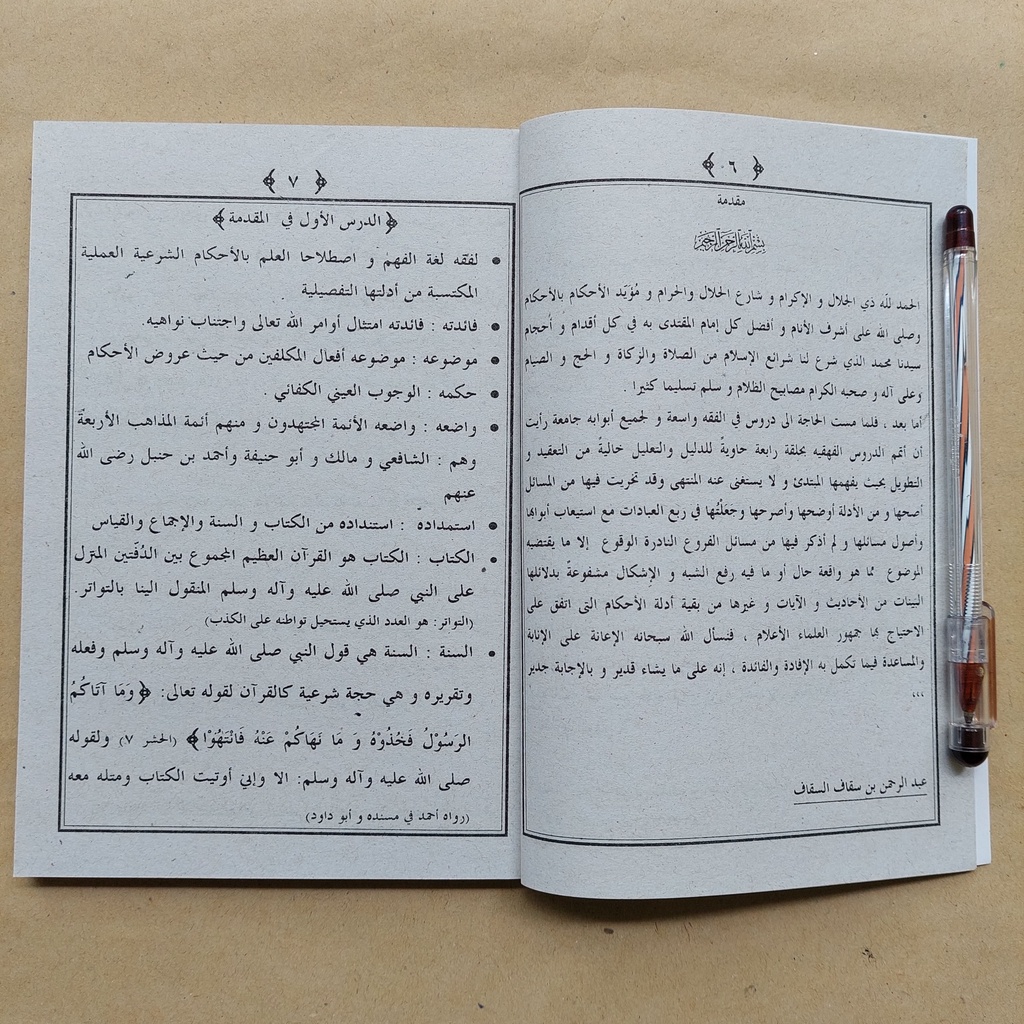 ٠٦
مقدمة
بسم الله الرحمن الرحيم
الحمد للّه ذي الجلال و الإكرام و شارع الحلال والحرام و مُؤيّد الأحكام بالأحكام
وصلى الله على أشرف الأنام و أفضل كل إمام المقتدى به في كل أقدام و أحجام
سيدنا محمد الذي شرع لنا شرائع الإسلام من الصلاة والزكاة و الحج و الصيام
وعلى آله و صحبه الكرام مصابيح الظلام و سلم تسليما كثيرا .
أما بعد ، فلما مست الحاجة الى دروس في الفقه واسعة و لجميع أبوابه جامعة رأيت
أن أتمّم الدروس الفقهيه بحلقة رابعة حاويةً للدليل والتعليل خاليةً من التعقيد و
التطويل بحيث يفهمها المبتدئ و لا يستغنى عنه المنتهى وقد تحريت فيها من المسائل
أصحها و من الأدلة أوضحها وأصرحها وجَعَلْتُها في ربع العبادات مع استيعاب أبوابها
وأصول مسائلها و لم أذكر فيها من مسائل الفروع النادرة الوقوع إلا ما يقتضيه
الموضوع مما هو واقعة حال أو ما فيه رفع الشبه و الإشكال مشفوعةً بدلائلها
البينات من الأحاديث و الآيات و غيرها من بقية أدلة الأحكام التى اتفق على
الاحتياج بها جمهور العلماء الأعلام ، فنسأل الله سبحانه الإعانة على الإنابة
والمساعدة فيما تكمل به الإفادة والفائدة ، إنه على ما يشاء قدير و بالإجابة جدير
،،،
عبد الرحمن بن سقاف السقاف
٧
﴿الدرس الأول في المقدمة﴾
• لفقه لغة الفهم و اصطلاحا العلم بالأحكام الشرعية العملية
المكتسبة من أدلتها التفصيلية
• فائدته : فائدته امتثال أوامر الله تعالى واجتناب نواهيه.
• موضوعه : موضوعه أفعال المكلفين من حيث عروض الأحكام
• حكمه : الوجوب العيني الكفائي .
• واضعه : واضعه الأئمة المجتهدون و منهم أئمة المذاهب الأربعةَ
وهم : الشافعي و مالك و أبو حنيفة وأحمد بن حنبل رضى الله
عنهم
• استمداده : استنداده من الكتاب و السنة والإجماع والقياس
• الكتاب : الكتاب هو القرآن العظيم المجموع بين الدُفّتين المنزل
على النبي صلى الله عليه وآله وسلم المنقول الينا بالتواتر.
(التواتر: هو العدد الذي يستحيل تواطنه على الكذب)
• السنة : السنة هي قول النبي صلى الله عليه وآله وسلم وفعله
وتقريره و هي حجة شرعية كالقرآن لقوله تعالى: ﴿ وَمَا آتَاكُمُ
الرَسُوْلُ فَخُذُوْهُ وَ مَا نَهَاكُمْ عَنْهُ فَانْتَهُوْا﴾ (الحشر ٧) ولقوله
صلى الله عليه وآله وسلم: الا وإني أوتيت الكتاب ومتله معه
(رواه أحمد في مسنده و أبو داود)